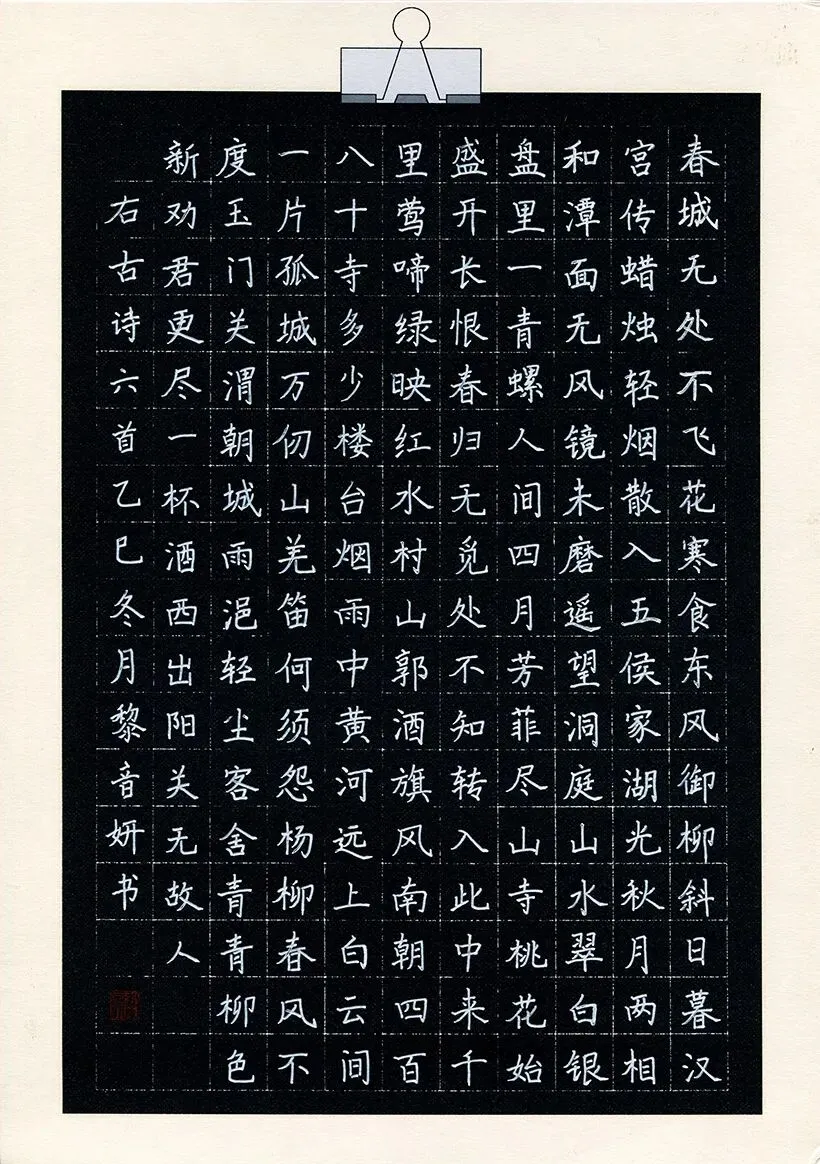 春城无处不飞花寒食东风御柳斜日暮汉
宫传蜡烛轻烟散入五侯家湖光秋月两相
和潭面无风镜未磨遥望洞庭山水翠白银
盘里一青螺人间四月芳菲尽山寺桃花始
盛开长恨春归无觅处不知转入此中来千
里莺啼绿映红水村山郭酒旗风南朝四百
八十寺多少楼台烟雨中黄河远上白云间
一片孤城万仞山羌笛何须怨杨柳春风不
度玉门关渭朝城雨浥轻尘客舍青青柳色
新劝君更尽一杯酒西出阳关无故人
右古诗六首乙巳冬月黎音妍书